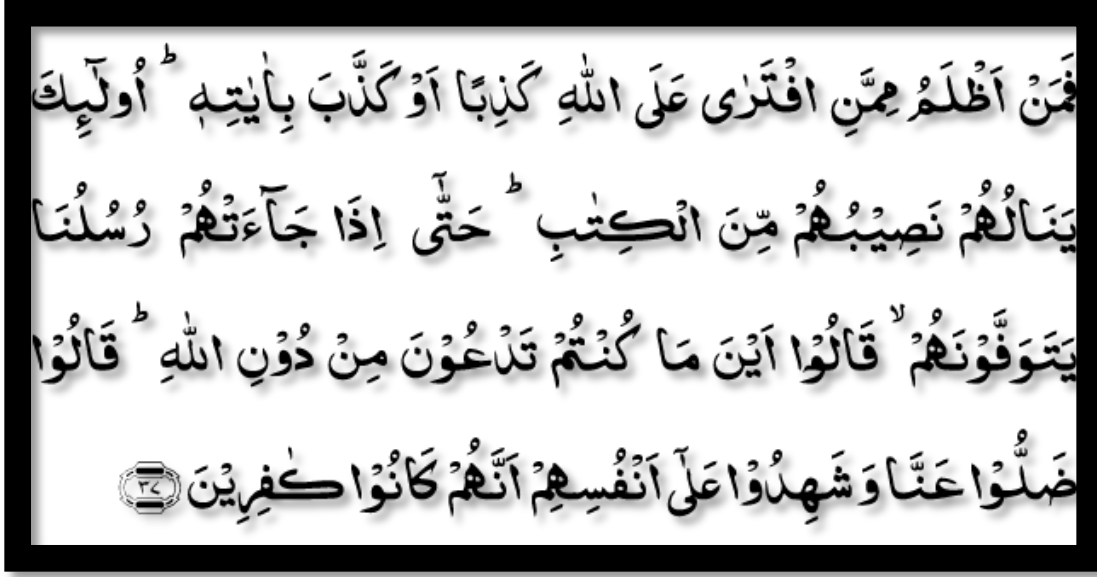 فَمَنْ اَظْلَمُ مِمَّنِ افْتَرٰى عَلَى اللّٰهِ كَذِبًا اَوْ كَذَّبَ بِاٰيٰتِهٖ ؕ اُولٰٓئِكَ
يَنَالُهُمْ نَصِيْبُهُمْ مِّنَ الْكِتٰبِ ؕ حَتّٰۤى اِذَا جَآءَتْهُمْ رُسُلُنَا
يَتَوَفَّوْنَهُمْ ۙ قَالُوْۤا اَيْنَ مَا كُنْتُمْ تَدْعُوْنَ مِنْ دُوْنِ اللّٰهِ ؕ قَالُوْا
ضَلُّوْا عَنَّا وَ شَهِدُوْا عَلٰۤى اَنْفُسِهِمْ اَنَّهُمْ كَانُوْا كٰفِرِيْنَ ۝۳۷